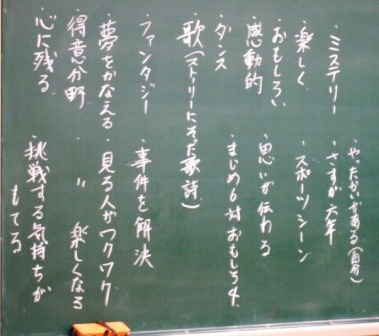 ・ミステリー
・楽しく
・おもしろい
・感動的
・ダンス
・歌(ストーリーにそった歌詩)
・ファンタジー
・夢をかなえる
・得意分野
・心に残る
・やったかいがある(自分)
・さすが六年
・スポーツシーン
・思いが伝わる
・まじめ6対おもしろ4
・事件を解決
・見る人がワクワク
・〃 楽しくなる
・挑戦する気持ちが
もてる